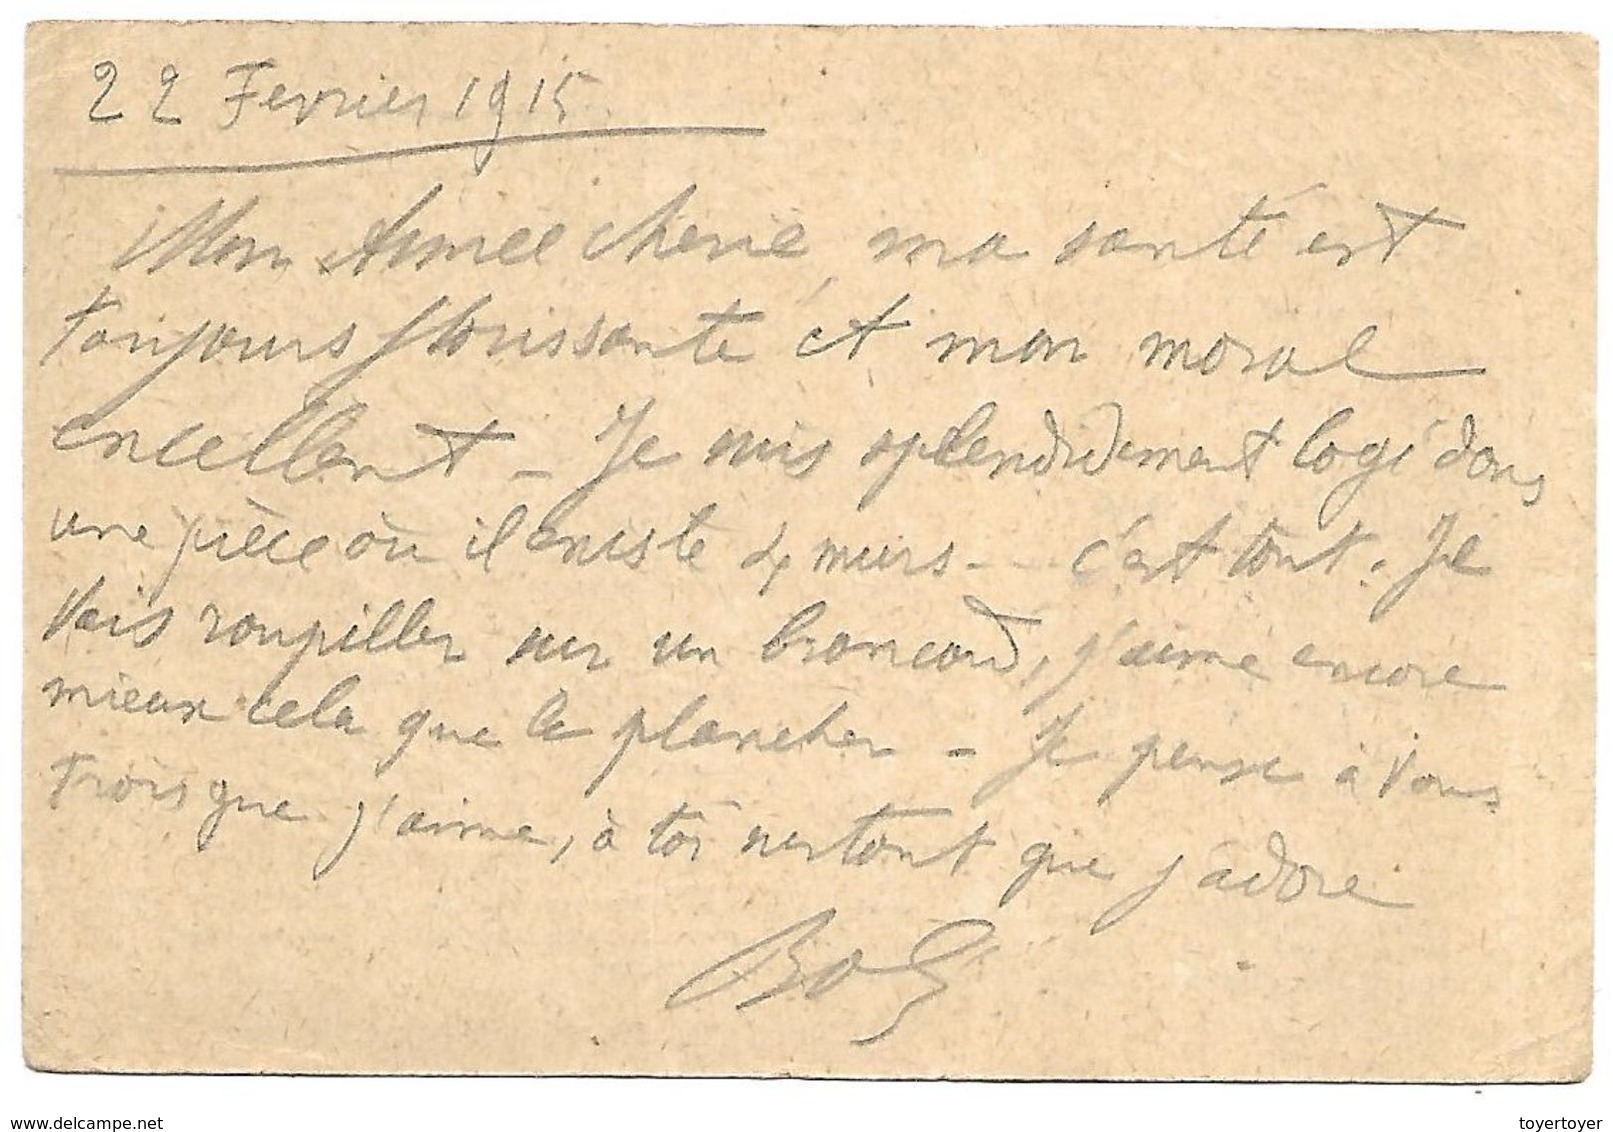 22 Fevrier 1915
Mon Aimée cherie, ma santé est
toujours florissante et mon moral
excellent - Je suis splendidement logé dans
une pièce où il existe 4 murs - c'est tout. Je
vais roupiller sur un brancard, j'aime encore
mieux cela que le plancher - Je pense à vous
trois que j'aime, à toi surtout que j'adore
delcampe.net
toyertoyer